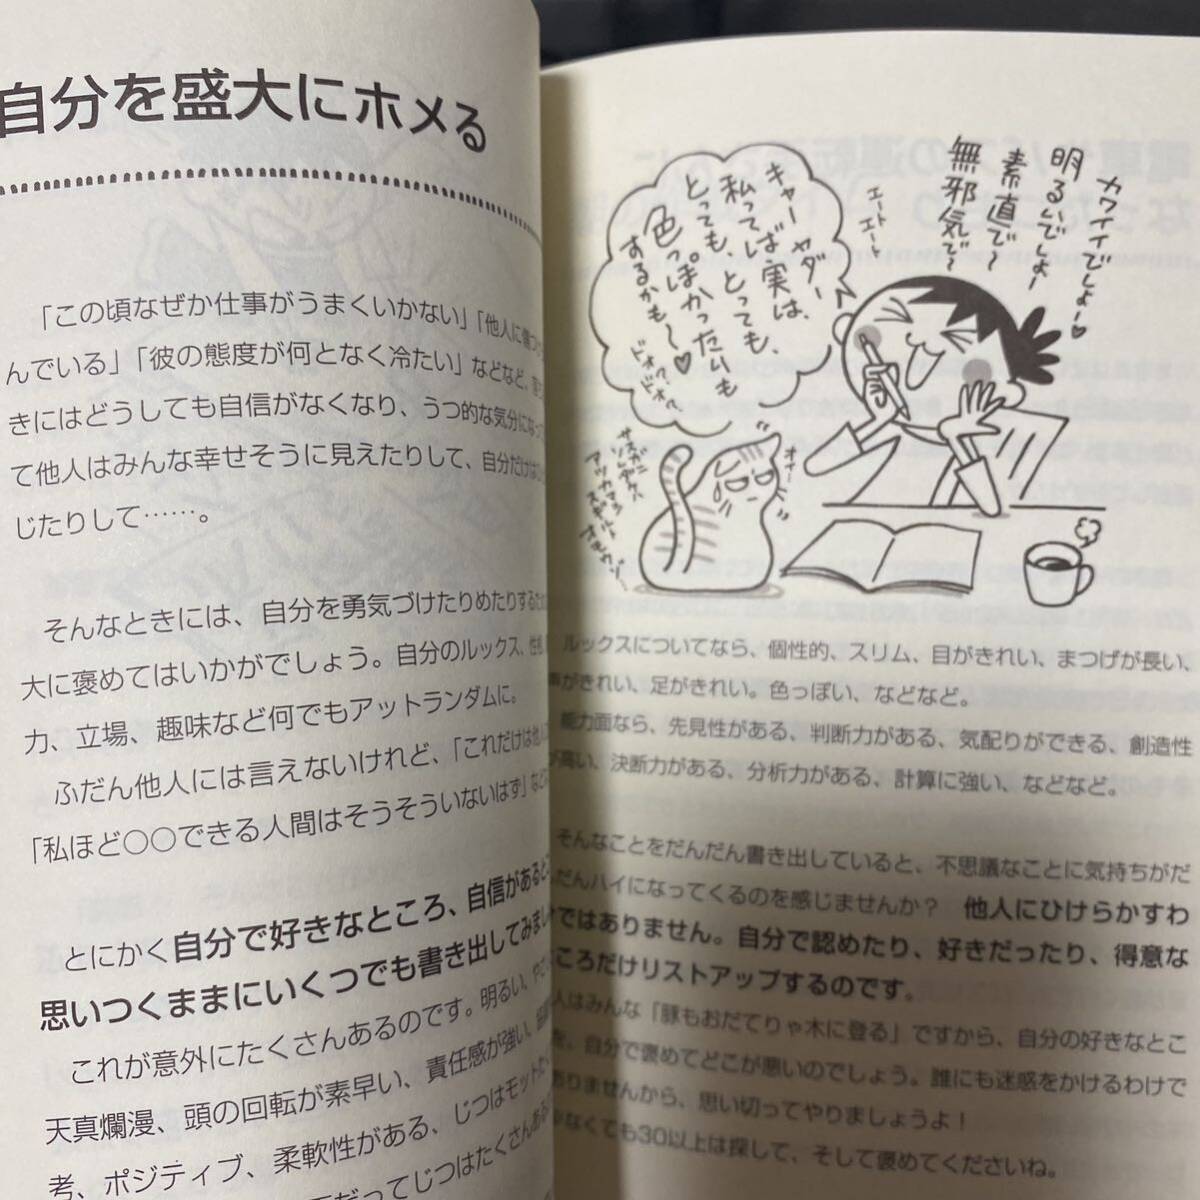 自分を盛大にホメる
「この頃なぜか仕事がうまくいかない」「他人に傷つけ
んでいる」「彼の態度が何となく冷たい」などなど、
きにはどうしても自信がなくなり、うつ的な気分になっ
て他人はみんな幸せそうに見えたりして、自分だけは
じたりして……。
そんなときには、自分を勇気づけたりめたりする
大に褒めてはいかがでしょう。自分のルックス、性
力、立場、趣味など何でもアットランダムに。
ふだん他人には言えないけれど、「これだけは他人
「私ほど〇〇できる人間はそうそういないはず」など
とにかく自分で好きなところ、自信があると
思いつくままにいくつでも書き出してみま
これが意外にたくさんあるのです。明るい、や
天真爛漫、頭の回転が素早い、責任感が強い、
考、ポジティブ、柔軟性がある、じつはモット
だってじつはたくさんある
カワイイでしょー♥
明るいでしょー
素直で〜
無邪気で〜
エートエート
キャー ヤダー
私ってば実は、
とっても、とっても、
色っぽかったいも
するかも〜♥
ドォ?ドォ?
オイー
サスガニ
アッカマシ
スギルト
オモウゾー
ルックスについてなら、個性的、スリム、目がきれい、まつげが長い、
がきれい、足がきれい。色っぽい、などなど。
能力面なら、先見性がある、判断力がある、気配りができる、創造性
が高い、決断力がある、分析力がある、計算に強い、などなど。
そんなことをだんだん書き出していると、不思議なことに気持ちがだ
んだんハイになってくるのを感じませんか? 他人にひけらかすわ
ではありません。自分で認めたり、好きだったり、得意な
ころだけリストアップするのです。
人はみんな「豚もおだてりゃ木に登る」ですから、自分の好きなとこ
を、自分で褒めてどこが悪いのでしょう。誰にも迷惑をかけるわけで
ありませんから、思い切ってやりましょうよ!
なくても30以上は探して、そして褒めてくださいね。